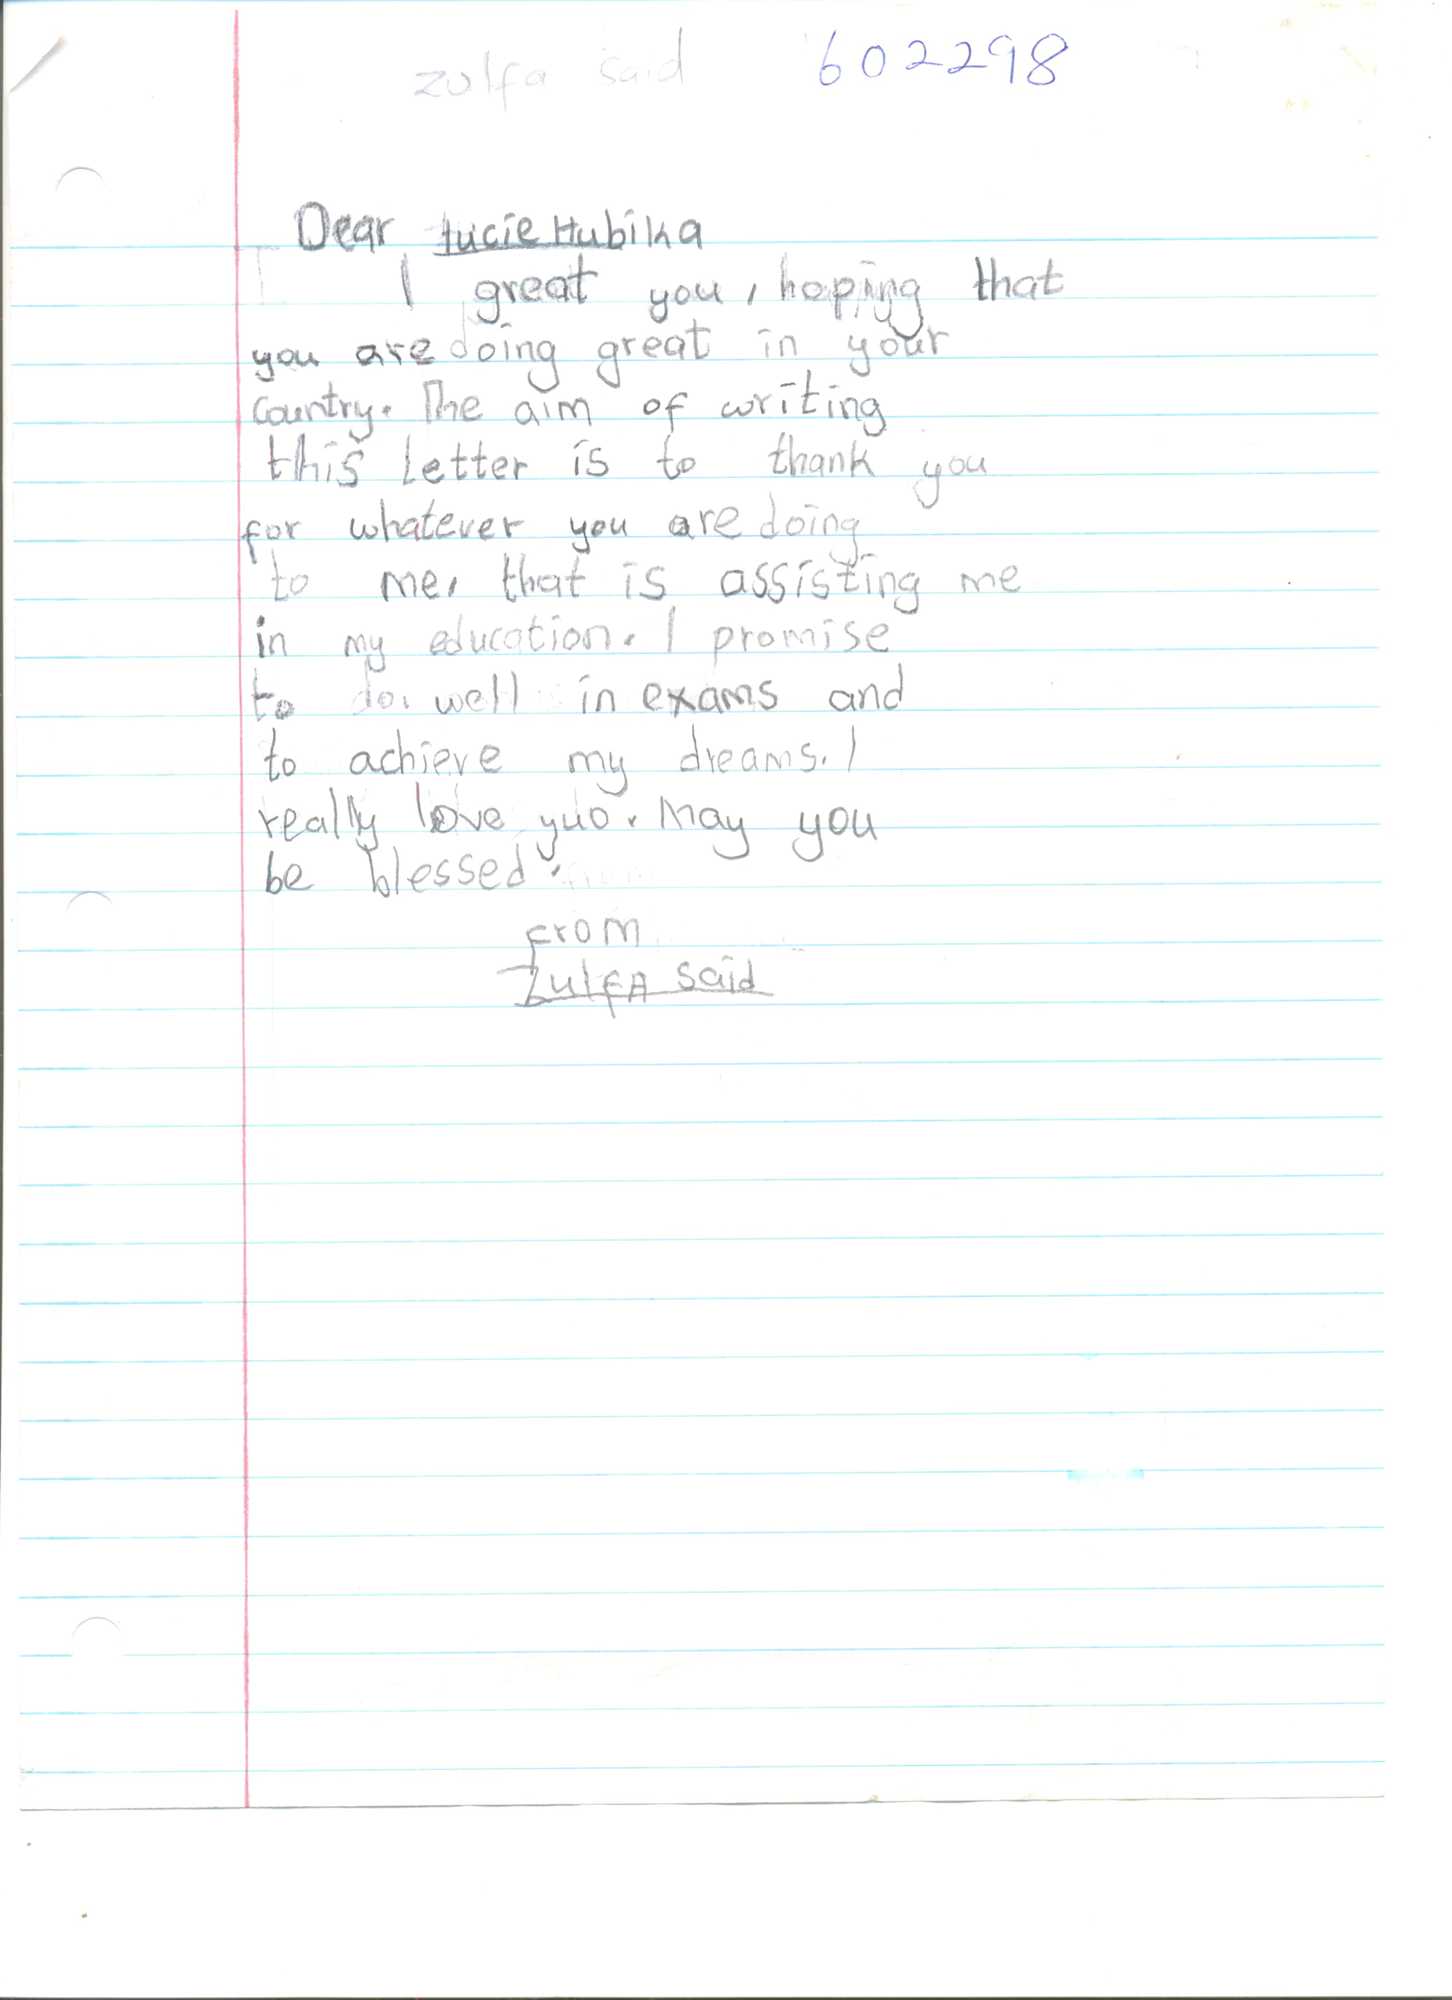 zulfa said 602298
Dear Lucie Hubika
I great you, hoping that
you are doing great in your
country. The aim of writing
this letter is to thank you
for whatever you are doing
to me, that is assisting me
in my education. I promise
to do well in exams and
to achieve my dreams. I
really love yuo. May you
be blessed.
from
ZulfA said